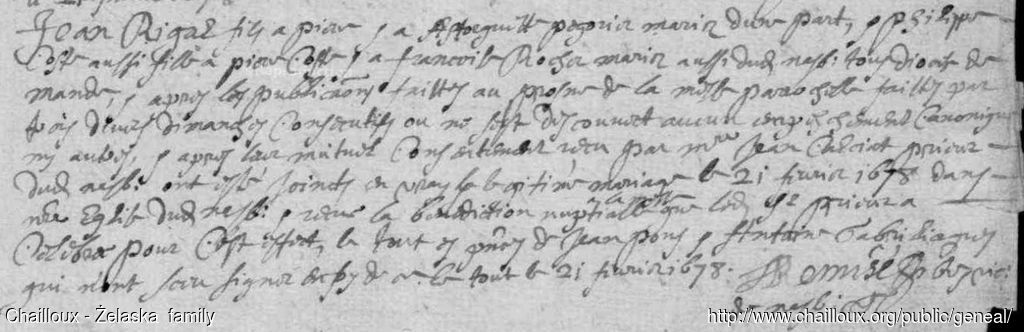 Jean Rigal fils a piere y a Astorguitte pagesier mariez dune part, y philippe
Coste aussi fille à piere Coste y a francoise Rocher mariez aussi dud nasb: tous diocise de
mande, y apres les publicaons faittes au prosne de la messe parochelle faittes par
trois divers dimanches Consecutifs ou ne sest descouvert aucun empeschement Canonique
ny autres, y apres leur mutuel Consentement reçu par mre Jean prieur
dud nasb: ont esté Joincts en vray & legitime mariage le 21 fevrier 1678 dans
nre Eglise dud nasb: y receu la benediction nuptialle que led sr prieur a
Celebre pour Cest effect, le tout es pnces de Jean pons y Antoine
qui nont sceu signer de ce. le tout le 21 fevrier 1678.
de nasb:
Chailloux - Żelaska family
http://www.chailloux.org/public/geneal/